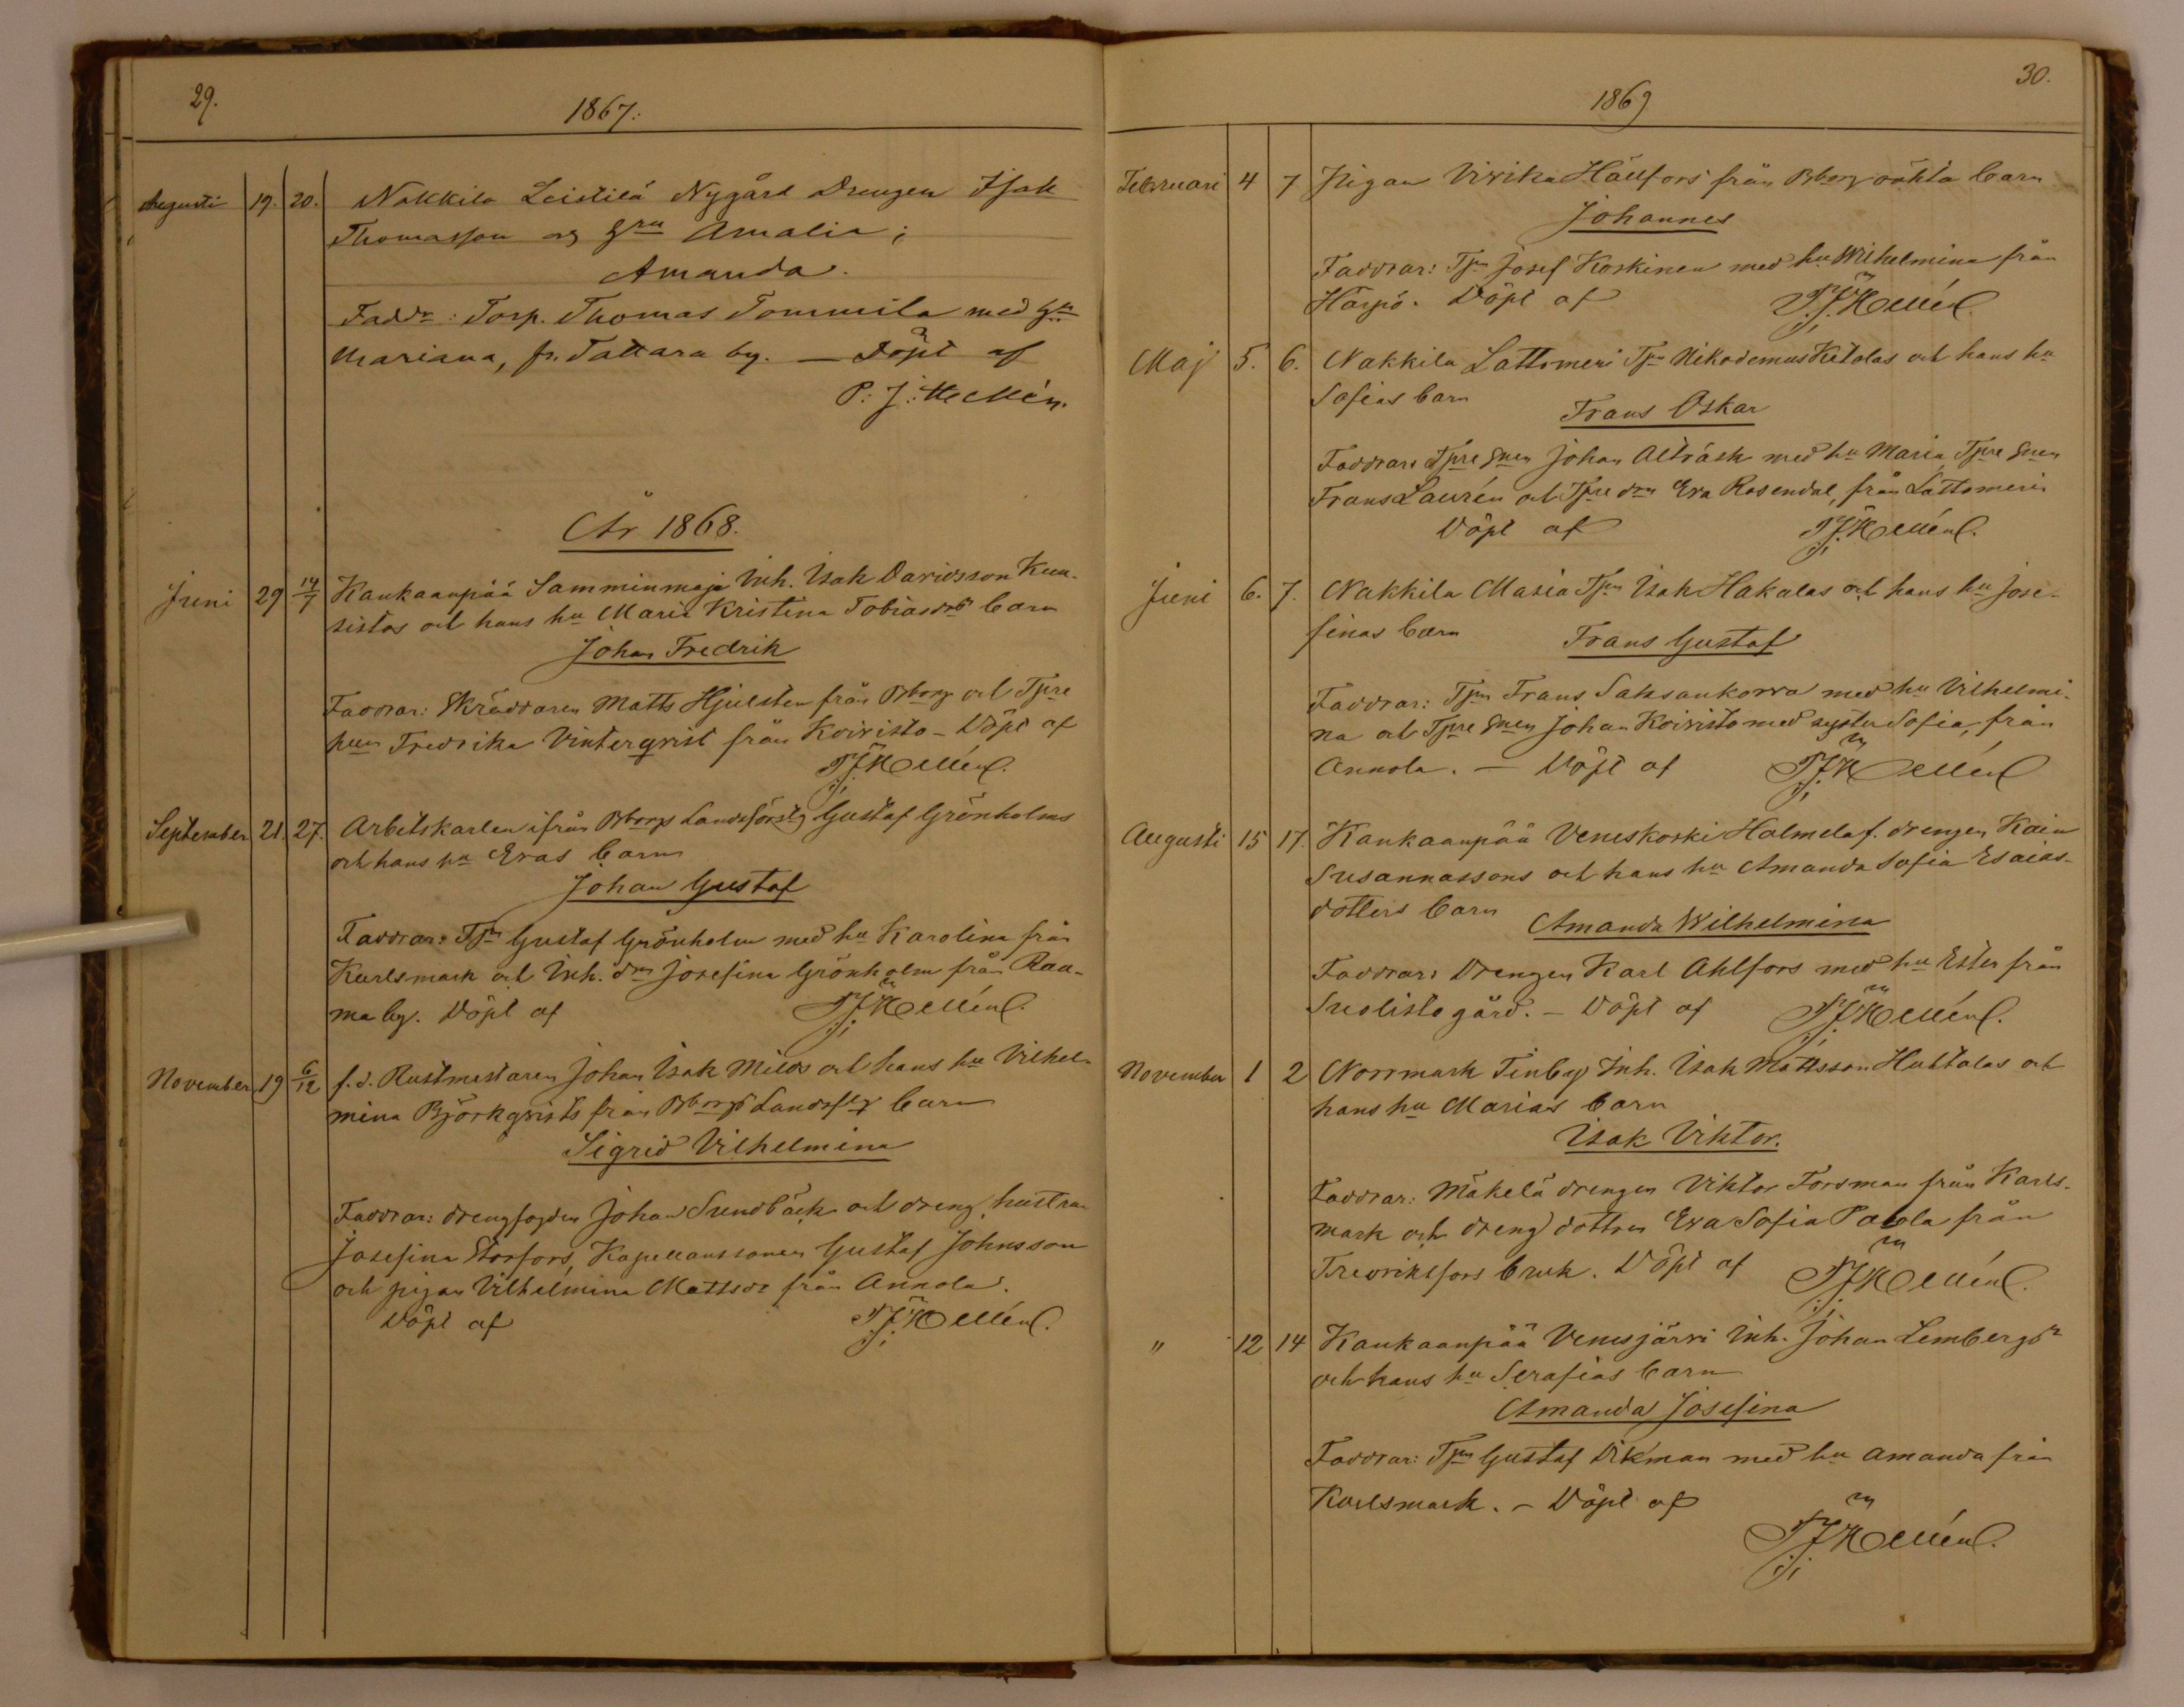 29.
1867.
Augusti 19. 20. Nakkila Leistilä Nygård Drengen Isak
Thomasson og hru Amalia;
Amanda.
Faddr: Torp. Thomas Tommila med hu
Mariana, fr. Tattara by. — Döpt af
P. J. Hellén.
År 1868.
Juni 29 14/7 Kankaanpää Samminmaja Inh. Isak Davidsson Kuu-
sistos och hans hu Maria Kristina Tobiasdrs barn
Johan Fredrik
Faddrar: Skräddaren Matts Hjulsten från Bborg och Tpre
hun Fredrika Vinterqvist från Koivisto – Döpt af
P. J. Hellén.
September 21. 27. Arbetskarlen ifrån Bborgs Landsförstg Gustaf Grönholms
och hans hu Evas barn
Johan Gustaf
Faddrar: Tpn Gustaf Grönholm med hu Karolina från
Karlsmark och Inh. drn Josefina Grönholm från Rau-
ma by. Döpt af P. J. Hellén.
November 19 6/12 f.d. Rustmästaren Johan Isak Milds och hans hu Vilhel-
mina Björkqvists från Bborgs Landsfstg barn
Sigrid Vilhelmina
Faddrar: drengfogden Johan Sundbäck och dreng hustrun
Josefina Storfors, Kapellanssonen Gustaf Johnsson
och pigan Vilhelmina Mattsdr från Annola.
Döpt af P. J. Hellén.
30.
1869
Februari 4 7 Pigan Virika Hällfors från Bborg oäkta barn
Johannes
Faddrar: Tpn Josef Koskinen med hu Wilhelmina från
Harjo. Döpt af P. J. Hellén.
Maj 5. 6. Nakkila Lattomeri Tpn Nikodemus Ketolas och hans hu
Sofias barn
Frans Oskar
Faddrar: Tpre Snen Johan Alträsk med hu Maria, Tpre Snen
Frans Laurén och Tpre drn Eva Rosendal, från Lattomeri
Döpt af P. J. Hellén.
Juni 6. 7. Nakkila Masia Tpn Isak Hakalas och hans hu Jose-
finas barn
Frans Gustaf
Faddrar: Tpn Frans Saksankorva med hu Vilhelmi-
na och Tpre Snen Johan Koivisto med syster Sofia, från
Annola. — Döpt af P. J. Hellén
Augusti 15 17. Kankaanpää Veneskoski Holmela f. drengen Kain
Susannassons och hans hu Amanda Sofia Esaias-
dotters barn
Amanda Wilhelmina
Faddrar: Drengen Karl Ahlfors med hu Ester från
Suolisto gård. – Döpt af P. J. Hellén.
November 1 2 Norrmark Finby Inh. Isak Mattsson Huhtalas och
hans hu Marias barn
Isak Viktor.
Faddrar: Mäkelä drengen Viktor Forsman från Karls-
mark och dreng dottren Eva Sofia Paola från
Fredriksfors bruk. Döpt af P. J. Hellén.
" 12 14 Kankaanpää Venesjärvi Inh. Johan Lembergs
och hans hu Serafias barn
Amanda Josefina
Faddrar: Tpn Gustaf Vikman med hu Amanda från
Karlsmark. – Döpt af
P. J. Hellén.